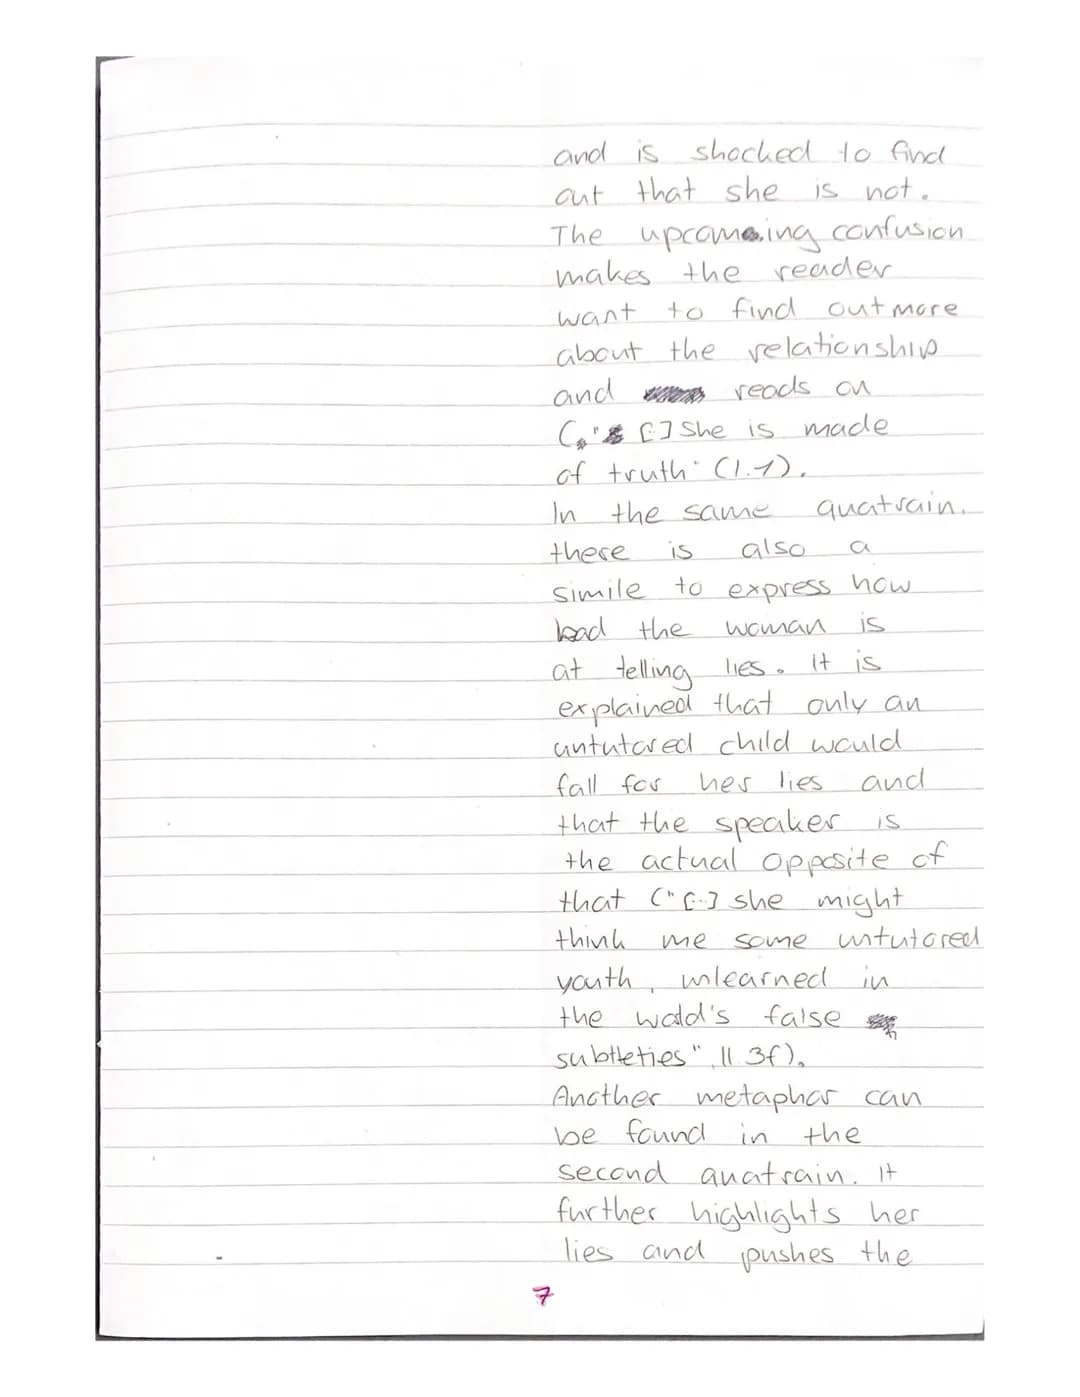 and is shocked to find
out that she is not.
The upcoming confusion
makes the reader
want to find out more
about the relationship
and reads on
(" [.] She is made
of truth" (l.1).
In the same quatrain.
there is also a
simile to express how
bad the woman is
at telling lies. It is
explained that only an
untutored child would
fall for her lies and
that the speaker is
the actual opposite of
that (" [..] she might
think me some untutored
youth, unlearned in
the wold's false
subtleties", ll. 3f).
Another metaphor can
be found in the
second quatrain. It
further highlights her
lies and pushes the
7